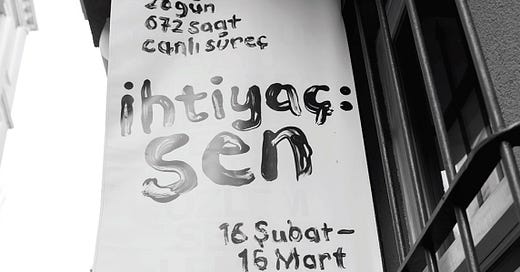 28 gün
672 saat
canlı süreç
ihtiyaç:
sen
16 Şubat–
15 Mart